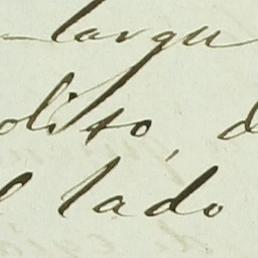 largu
olito, d
l lado